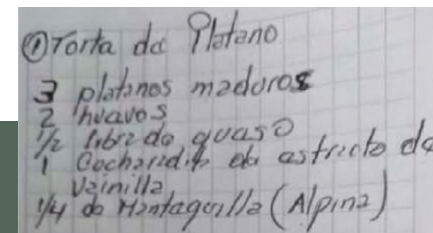 ① Torta de Platano
3 platanos maduros
2 huevos
1/2 libra de queso
1 Cucharadita de estricto de
Vainilla
1/4 de Mantaquilla (Alpina)